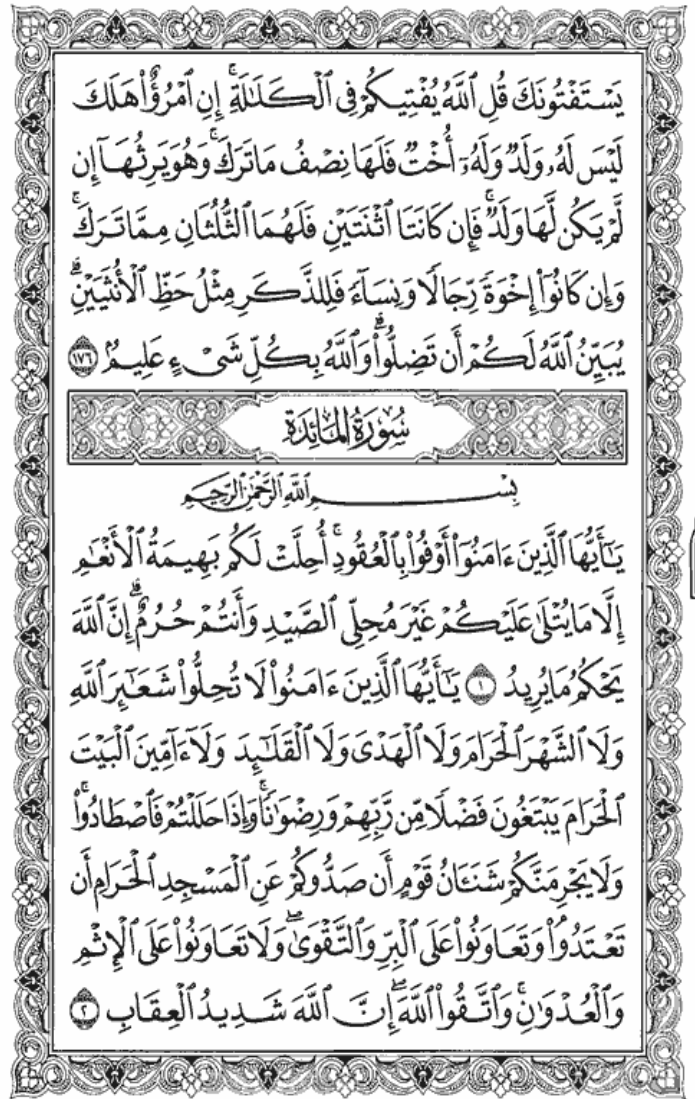 يَسْتَفْتُونَكَ قُلِ ٱللَّهُ يُفْتِيكُمْ فِى ٱلْكَلَـٰلَةِ ۚ إِنِ ٱمْرُؤٌا۟ هَلَكَ
لَيْسَ لَهُۥ وَلَدٌ وَلَهُۥٓ أُخْتٌ فَلَهَا نِصْفُ مَا تَرَكَ ۚ وَهُوَ يَرِثُهَآ إِن
لَّمْ يَكُن لَّهَا وَلَدٌ ۚ فَإِن كَانَتَا ٱثْنَتَيْنِ فَلَهُمَا ٱلثُّلُثَانِ مِمَّا تَرَكَ ۚ
وَإِن كَانُوٓا۟ إِخْوَةً رِّجَالًا وَنِسَآءً فَلِلذَّكَرِ مِثْلُ حَظِّ ٱلْأُنثَيَيْنِ ۗ
يُبَيِّنُ ٱللَّهُ لَكُمْ أَن تَضِلُّوا۟ ۗ وَٱللَّهُ بِكُلِّ شَىْءٍ عَلِيمٌۢ ١٧٦
سُورَةُ المَائِدَةِ
بِسْمِ ٱللَّهِ ٱلرَّحْمَـٰنِ ٱلرَّحِيمِ
يَـٰٓأَيُّهَا ٱلَّذِينَ ءَامَنُوٓا۟ أَوْفُوا۟ بِٱلْعُقُودِ ۚ أُحِلَّتْ لَكُم بَهِيمَةُ ٱلْأَنْعَـٰمِ
إِلَّا مَا يُتْلَىٰ عَلَيْكُمْ غَيْرَ مُحِلِّى ٱلصَّيْدِ وَأَنتُمْ حُرُمٌ ۗ إِنَّ ٱللَّهَ
يَحْكُمُ مَا يُرِيدُ ١ يَـٰٓأَيُّهَا ٱلَّذِينَ ءَامَنُوا۟ لَا تُحِلُّوا۟ شَعَـٰٓئِرَ ٱللَّهِ
وَلَا ٱلشَّهْرَ ٱلْحَرَامَ وَلَا ٱلْهَدْىَ وَلَا ٱلْقَلَـٰٓئِدَ وَلَآ ءَآمِّينَ ٱلْبَيْتَ
ٱلْحَرَامَ يَبْتَغُونَ فَضْلًا مِّن رَّبِّهِمْ وَرِضْوَٰنًا ۚ وَإِذَا حَلَلْتُمْ فَٱصْطَادُوا۟ ۚ
وَلَا يَجْرِمَنَّكُمْ شَنَـَٔانُ قَوْمٍ أَن صَدُّوكُمْ عَنِ ٱلْمَسْجِدِ ٱلْحَرَامِ أَن
تَعْتَدُوا۟ ۘ وَتَعَاوَنُوا۟ عَلَى ٱلْبِرِّ وَٱلتَّقْوَىٰ ۖ وَلَا تَعَاوَنُوا۟ عَلَى ٱلْإِثْمِ
وَٱلْعُدْوَٰنِ ۚ وَٱتَّقُوا۟ ٱللَّهَ ۖ إِنَّ ٱللَّهَ شَدِيدُ ٱلْعِقَابِ ٢